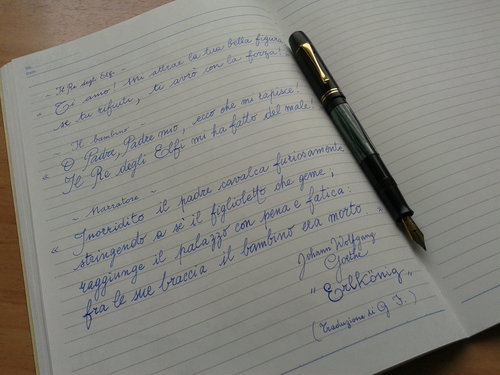 ~ Il Re degli Elfi ~
" Ti amo! mi attrae la tua bella figura
se tu rifiuti, ti avrò con la forza!
~ Il bambino ~
« O Padre, Padre mio, ecco che mi rapisce!
Il Re degli Elfi mi ha fatto del male!
~ Narratore ~
« Inorridito il padre cavalca furiosamente
stringendo a sè il figlioletto che geme,
raggiunge il palazzo con pena e fatica:
fra le sue braccia il bambino era morto. "
Johann Wolfgang
Goethe
" Erlkönig "
(Traduzione di G. F.)